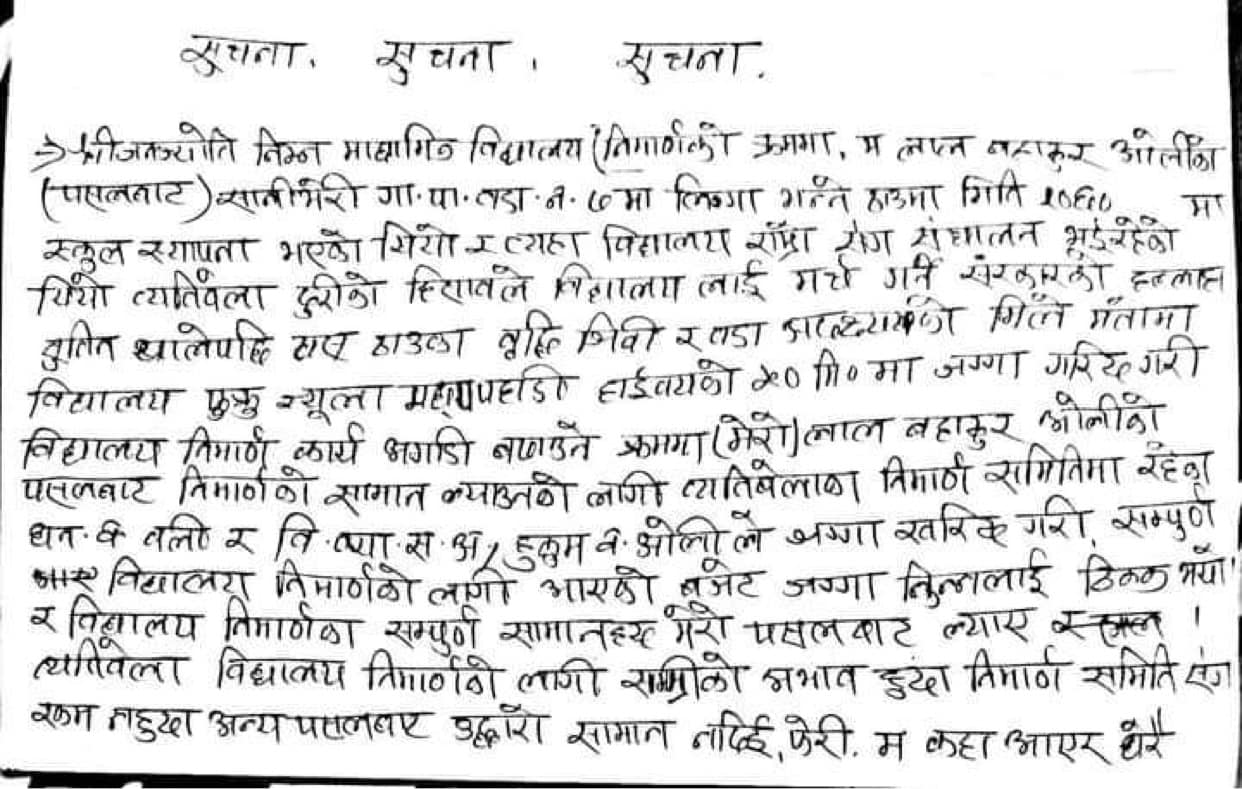 सुचना. सुचना. सुचना.
→ श्री जनज्योति निम्न माद्यामिक विद्यालय (निमार्णको क्रममा, म लाल बहादुर ओलीको
(पसलबाट) सानीभेरी गा.पा.वडा.न. ७ मा लिग्गा भन्ने ठाउमा मिति २०६० मा
स्कुल स्थापना भएको थियो र त्यहा विद्यालय राम्रो संग संचालन भईरहेको
थियो त्यतिवेला दुरीको हिसावले विद्यालय लाई मर्च गर्ने संरकारको
थालेपछि ठाउका बुद्धि जिवी र वडा को मिले मँतामा
विद्यालय महापहाडी हाईवयको ५० मि० मा जग्गा गरिद गरी
विद्यालय निमार्ण कार्य अगाडी बणाउने क्रममा (मेरो) लाल बहादुर ओलीको
पसलबाट निमार्णको सामान ल्याउनको लागी त्यतिबेलाका निमार्ण समितिमा रहेका
धन.ब वली र वि.व्या.स.अ, हुकुम ब.ओली ले जग्गा खरिद गरी, सम्पुर्ण
विद्यालय निमार्णको लागी आएको बजेट जग्गा किन्नलाई ठिक्क भयो।
र विद्यालय निमार्णका सम्पुर्ण सामानहरु मेरो पसलबाट ल्याए ।
त्यतिवेला विद्यालय निमार्णको लागी सामग्रीको अभाव हुंदा निमार्ण समिति संग
रकम नहुदा अन्य पसलबाट उद्धारो सामान नदिई, फेरी. म कहा आएर धेरै